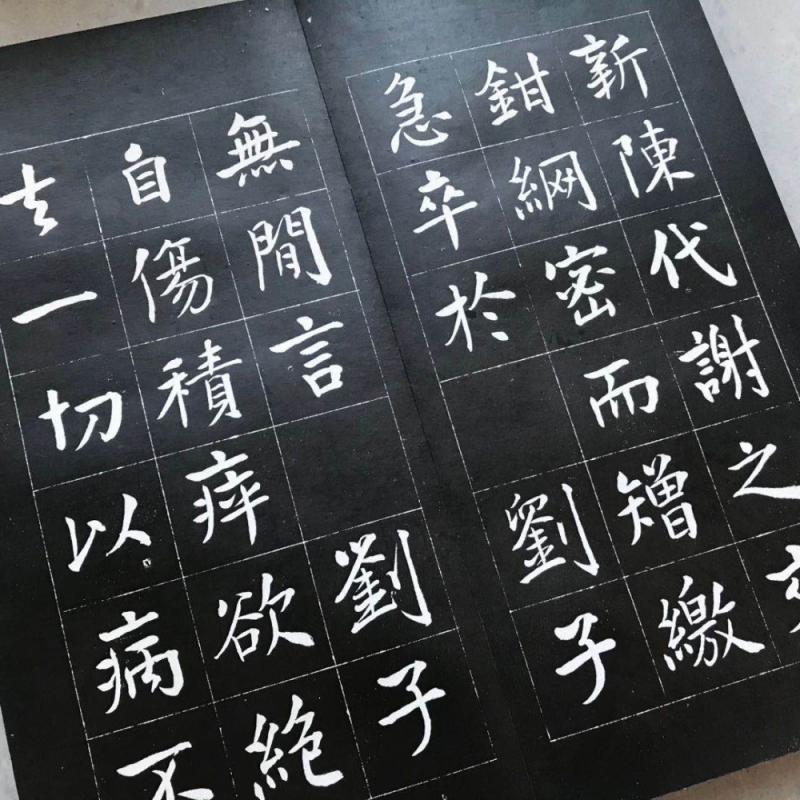 新陳代謝之交
鉗網密而矰繳
急卒於劉子
無閒言劉子
自傷積瘁欲絶
去一切以病不